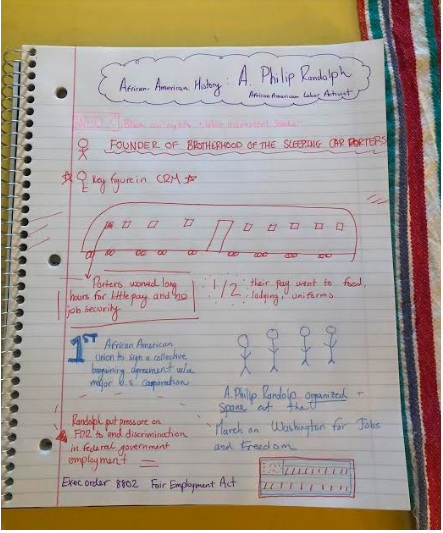 African-American History: A. Philip Randolph
African American Labor Activist
WHO?
FOUNDER OF BROTHERHOOD OF THE SLEEPING CAR PORTERS
Key figure in CRM
Porters worked long
hours for little pay and no
job security
1/2 their pay went to food,
lodging, uniforms
1ST African American
union to sign a collective
bargaining agreement w/a
major U.S. corporation
A. Philip Randolp organized +
spoke at the
March on Washington for Jobs
and Freedom
Randolph put pressure on
FDR to end discrimination
in federal government
employment
Exec order 8802 Fair Employment Act